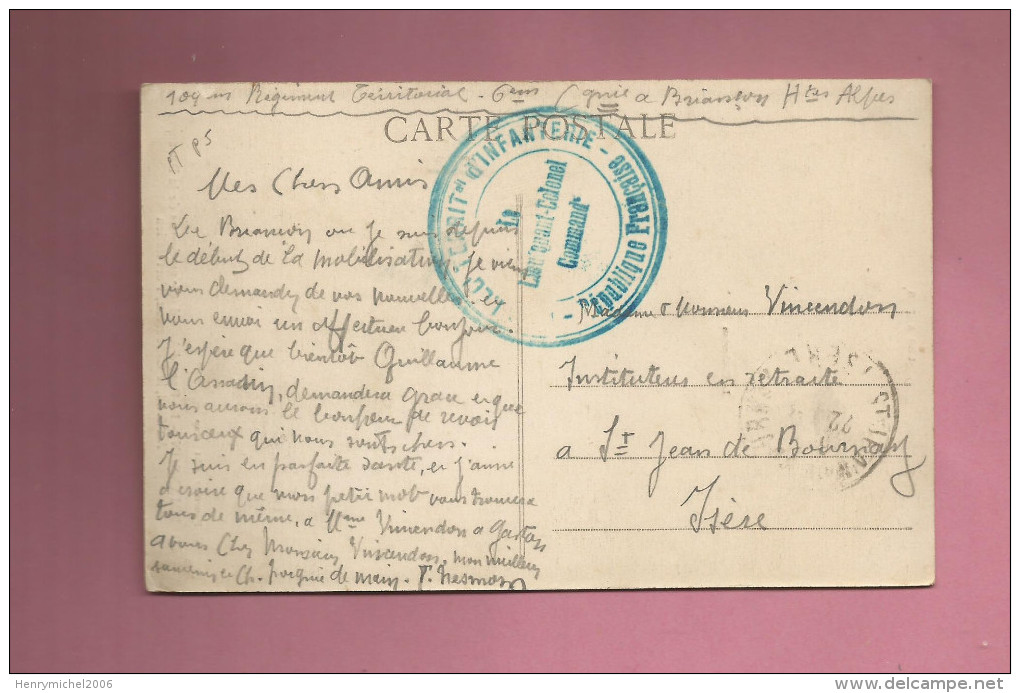 109em Régiment Territorial - 6em Cgnie a Briançon Htes Alpes
CARTE POSTALE
TERRIT^al d'INFANTERIE - République Française -
Le
Lieutenant-Colonel
Command^t
Mes Chers Amis
De Briançon ou je suis depuis
le début de la mobilisation, je viens
vous demander de vos nouvelles et
vous envoi un affectueux bonjour.
J'espère que bientôt Guillaume
l'Assassin, demandera grace et que
nous aurons le bonheur de revoir
tous ceux qui nous sont chers.
Je suis en parfaite santé, et j'aime
a croire que mon petit mot vous trouvera
tous de même, a Mme Vincendon a Gaston
a vous Cher Monsieur Vincendon, mon meilleur
souvenir et Ch. poignée de main.
Madame & Monsieur Vincendon
Instituteurs en retraite
a St Jean de Bournay
Isère
22
Henrymichel2006
www.delcampe.net